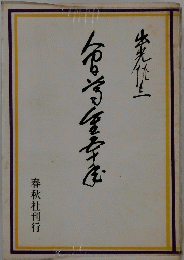 出光佐三
人間尊重五十年
春秋社刊行